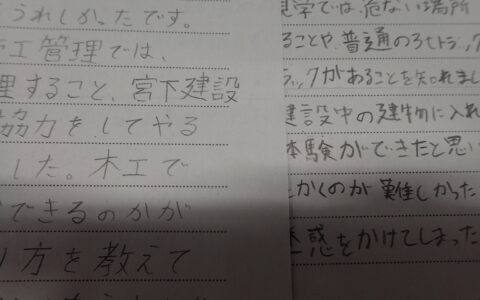 うれしかったです。
工管理では、
理すること、宮下建設
協力をしてやる
した。木工で
できるのかが
り方を教えて
見学では、危ない場所
ることや、普通の3tトラック
ラックがあることを知れまし
建設中の建物に入れ
体験ができたと思い
かくのが難しかった
惑をかけてしまった